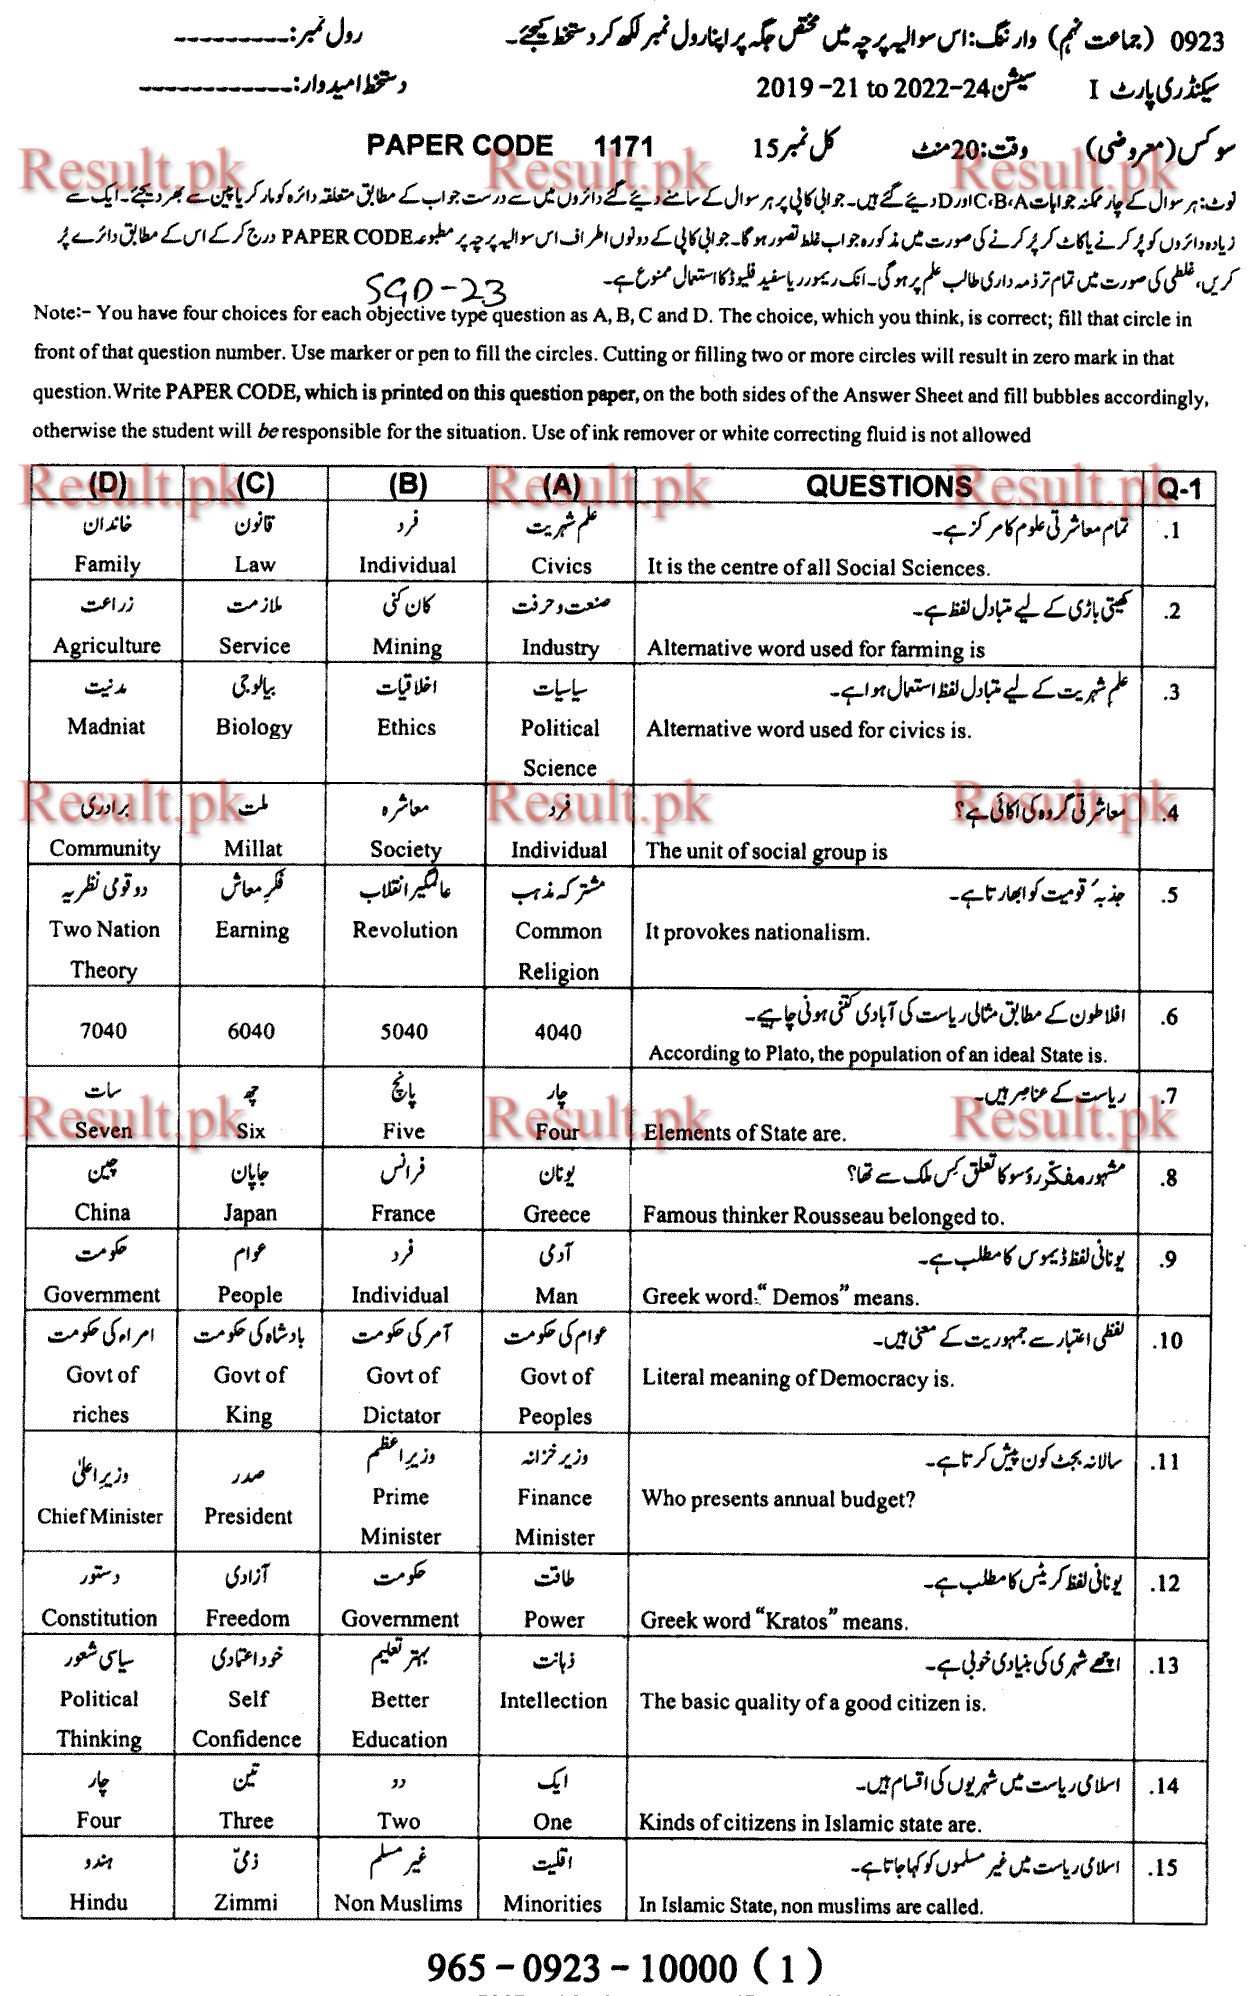 0923 (جماعت نہم) وارننگ: اس سوالیہ پرچہ میں مختص جگہ پر اپنا رول نمبر لکھ کر دستخط کیجئے۔ رول نمبر: ---------
سیکنڈری پارٹ I سیشن 2019 -21 to 2022-24 دستخط امیدوار: ------------
سوکس (معروضی) وقت: 20 منٹ کل نمبر 15 PAPER CODE 1171
نوٹ: ہر سوال کے چار ممکنہ جوابات A، B، C اور D دیئے گئے ہیں۔ جوابی کاپی پر ہر سوال کے سامنے دیئے گئے دائروں میں سے درست جواب کے مطابق متعلقہ دائرہ کو مارکر یا پین سے بھر دیجئے۔ ایک سے
زیادہ دائروں کو پُر کرنے یا کاٹ کر پُر کرنے کی صورت میں مذکورہ جواب غلط تصور ہوگا۔ جوابی کاپی کے دونوں اطراف اس سوالیہ پرچہ پر مطبوعہ PAPER CODE درج کر کے اس کے مطابق دائرے پُر
کریں، غلطی کی صورت میں تمام تر ذمہ داری طالب علم پر ہوگی۔ انک ریمور ریا سفید فلیوڈ کا استعمال ممنوع ہے۔
SGD-23
Note:- You have four choices for each objective type question as A, B, C and D. The choice, which you think, is correct; fill that circle in
front of that question number. Use marker or pen to fill the circles. Cutting or filling two or more circles will result in zero mark in that
question. Write PAPER CODE, which is printed on this question paper, on the both sides of the Answer Sheet and fill bubbles accordingly,
otherwise the student will be responsible for the situation. Use of ink remover or white correcting fluid is not allowed
(D) (C) (B) (A) QUESTIONS Q-1
.1 تمام معاشرتی علوم کا مرکز ہے۔ علم شہریت فرد قانون خاندان
Family Law Individual Civics It is the centre of all Social Sciences.
.2 کھیتی باڑی کے لیے متبادل لفظ ہے۔ صنعت و حرفت کان کنی ملازمت زراعت
Agriculture Service Mining Industry Alternative word used for farming is
.3 علم شہریت کے لیے متبادل لفظ استعمال ہوا ہے۔ سیاسیات اخلاقیات بیالوجی مدنیت
Madniat Biology Ethics Political Alternative word used for civics is.
Science
.4 معاشرتی گروہ کی اکائی ہے؟ فرد معاشرہ ملت برادری
Community Millat Society Individual The unit of social group is
.5 جذبۂ قومیت کو ابھارتا ہے۔ مشترکہ مذہب عالمگیر انقلاب فکرِ معاش دو قومی نظریہ
Two Nation Earning Revolution Common It provokes nationalism.
Theory Religion
.6 افلاطون کے مطابق مثالی ریاست کی آبادی کتنی ہونی چاہیے۔
7040 6040 5040 4040
According to Plato, the population of an ideal State is.
.7 ریاست کے عناصر ہیں۔ چار پانچ چھ سات
Seven Six Five Four Elements of State are.
.8 مشہور مفکر رؤسو کا تعلق کس ملک سے تھا؟ یونان فرانس جاپان چین
China Japan France Greece Famous thinker Rousseau belonged to.
.9 یونانی لفظ ڈیموس کا مطلب ہے۔ آدمی فرد عوام حکومت
Government People Individual Man Greek word "Demos" means.
.10 لفظی اعتبار سے جمہوریت کے معنی ہیں۔ عوام کی حکومت آمر کی حکومت بادشاہ کی حکومت امراء کی حکومت
Govt of Govt of Govt of Govt of Literal meaning of Democracy is.
riches King Dictator Peoples
.11 سالانہ بجٹ کون پیش کرتا ہے۔ وزیر خزانہ وزیراعظم صدر وزیراعلیٰ
Chief Minister President Prime Finance Who presents annual budget?
Minister Minister
.12 یونانی لفظ کریٹس کا مطلب ہے۔ طاقت حکومت آزادی دستور
Constitution Freedom Government Power Greek word "Kratos" means.
.13 اچھے شہری کی بنیادی خوبی ہے۔ ذہانت بہتر تعلیم خود اعتمادی سیاسی شعور
Political Self Better Intellection The basic quality of a good citizen is.
Thinking Confidence Education
.14 اسلامی ریاست میں شہریوں کی اقسام ہیں۔ ایک دو تین چار
Four Three Two One Kinds of citizens in Islamic state are.
.15 اسلامی ریاست میں غیر مسلموں کو کہا جاتا ہے۔ اقلیت غیر مسلم ذمیّ ہندو
Hindu Zimmi Non Muslims Minorities In Islamic State, non muslims are called.
965 - 0923 - 10000 ( 1 )
Result.pk Result.pk Result.pk
Result.pk Result.pk Result.pk
Result.pk Result.pk Result.pk
Result.pk Result.pk Result.pk